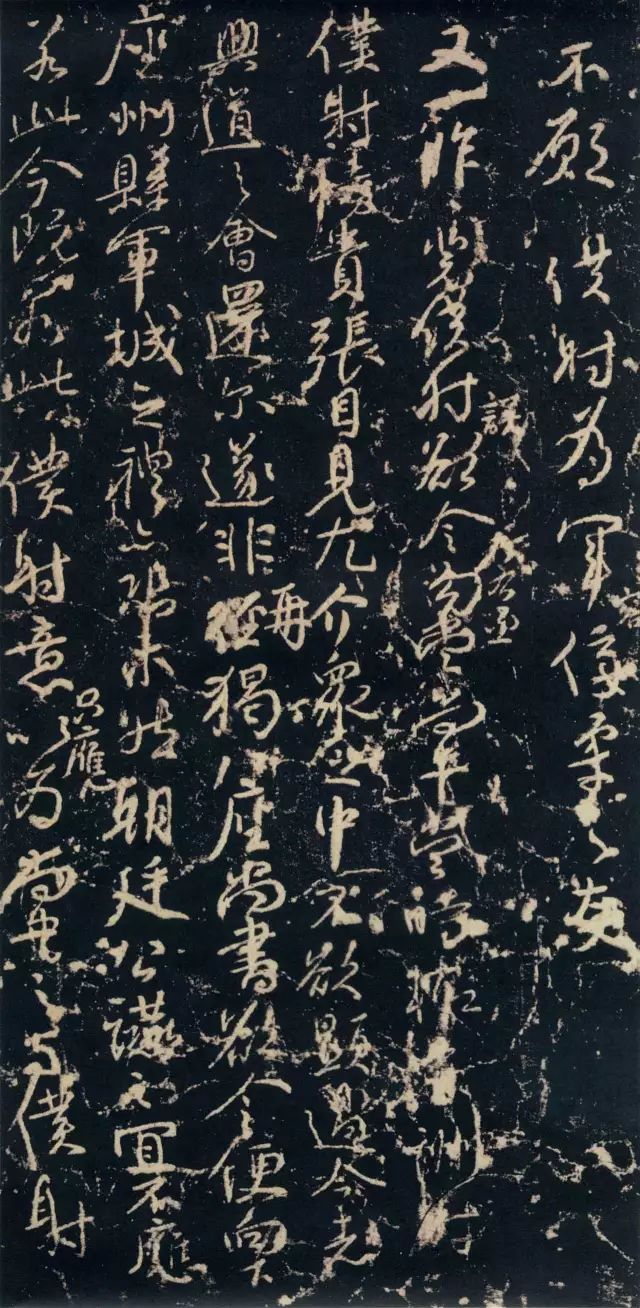 不願僕射為軍容佞柔之友
又一昨裴僕射誤欲令左右丞勾當尚書當時輒有酬對
僕射恃貴張目見尤介眾之中不欲顯過今者
興道之會還爾遂非再猲八座尚書欲令便向
座州縣軍城之禮亦恐未然朝廷公讌之宜不應
若此今既若此僕射意只應以為尚書之與僕射